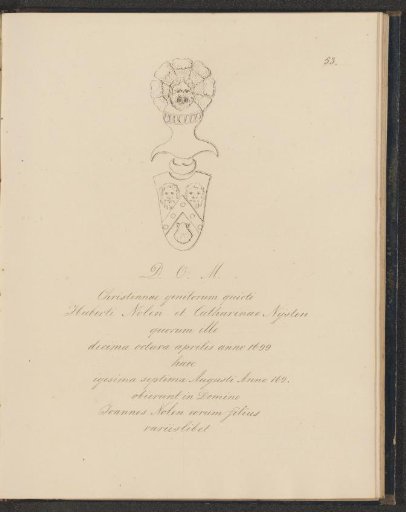 33.
D. O. M.
Christennae genitorum quieti
Huberti Nolen et Catharinae Nysten
quorum ille
decima octava aprilis anno 1699
haec
vigesima septima Augusti Anno 169.
obierunt in Domino
Joannes Nolen eorum filius